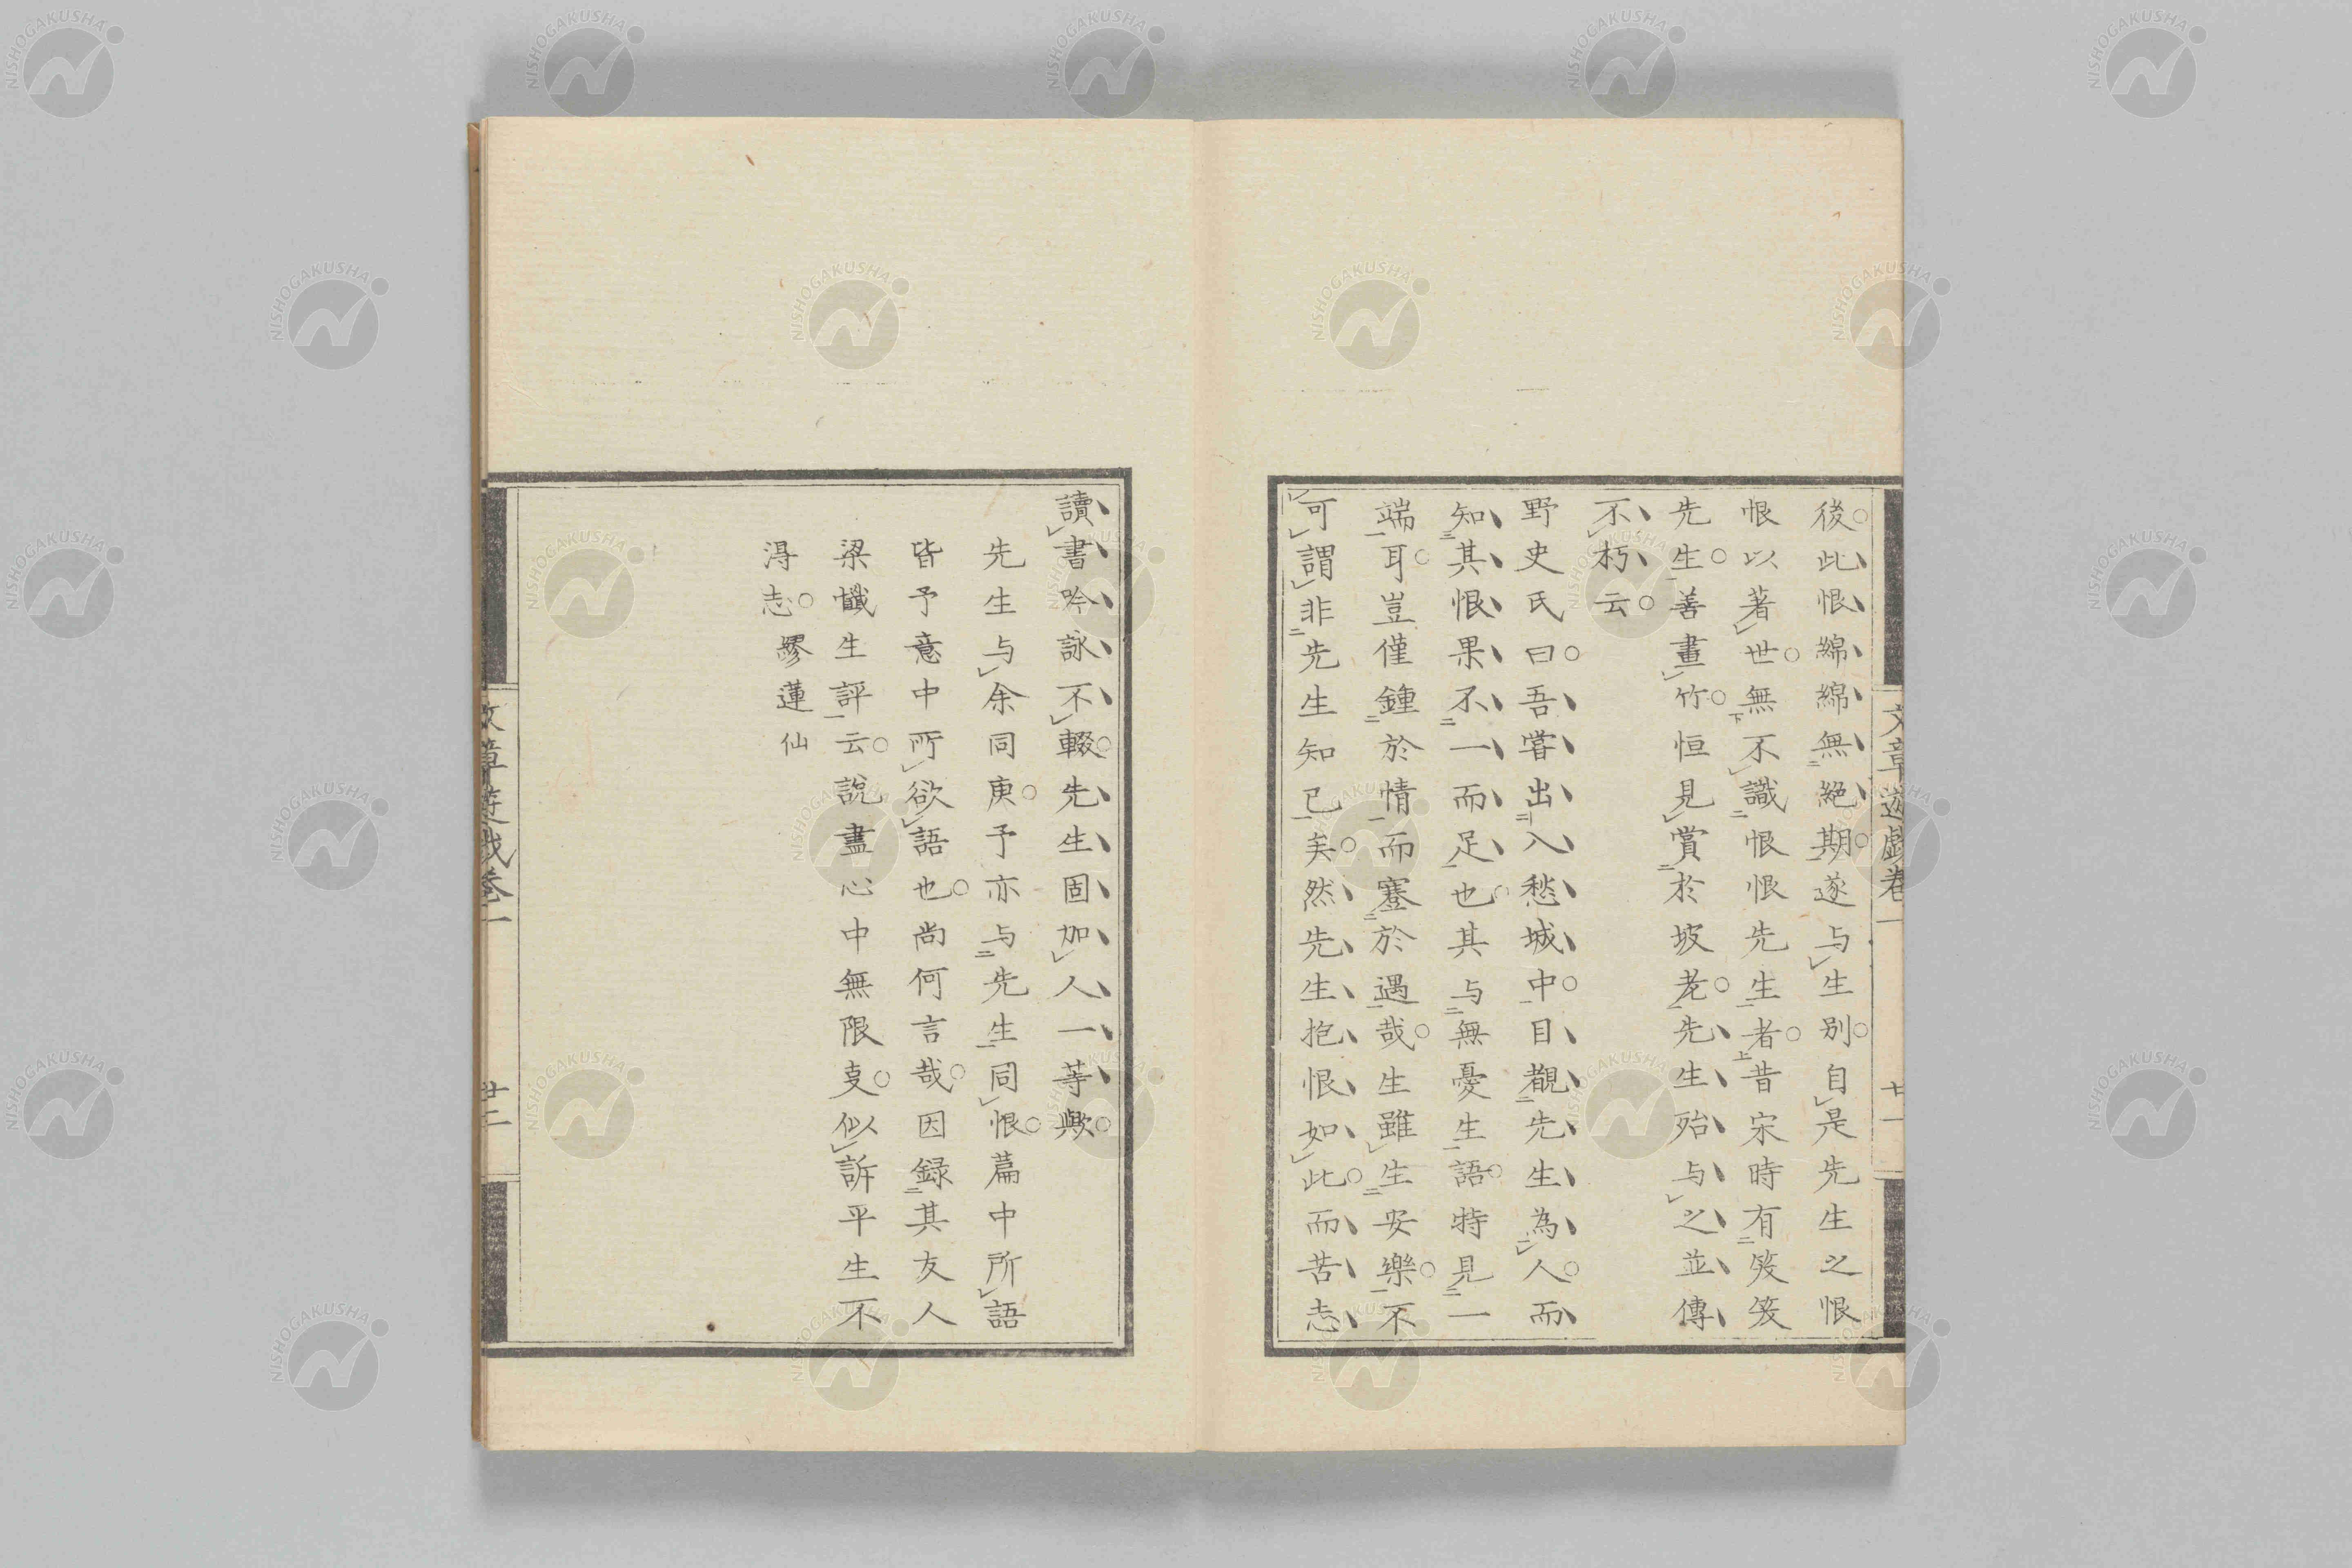 文章遊戯卷一
廿一
後此恨綿綿無絕期遂与生別自是先生之恨
恨以著世無不識恨恨先生者昔宋時有笑笑
先生善畫竹恒見賞於坡老先生殆与之並傳
不朽云
野史氏曰吾嘗出入愁城中目覩先生為人而
知其恨果不一而足也其与無憂生語特見一
端耳豈僅鍾於情而蹇於遇哉生雖生安樂不
可謂非先生知已矣然先生抱恨如此而苦志
讀書吟詠不輟先生固加人一等歟
先生与余同庚予亦与先生同恨篇中所語
皆予意中所欲語也尚何言哉因録其友人
梁懺生評云說盡心中無限叓似訴平生不
淂志繆蓮仙
文章遊戯卷一
廿二
NISHOGAKUSHA